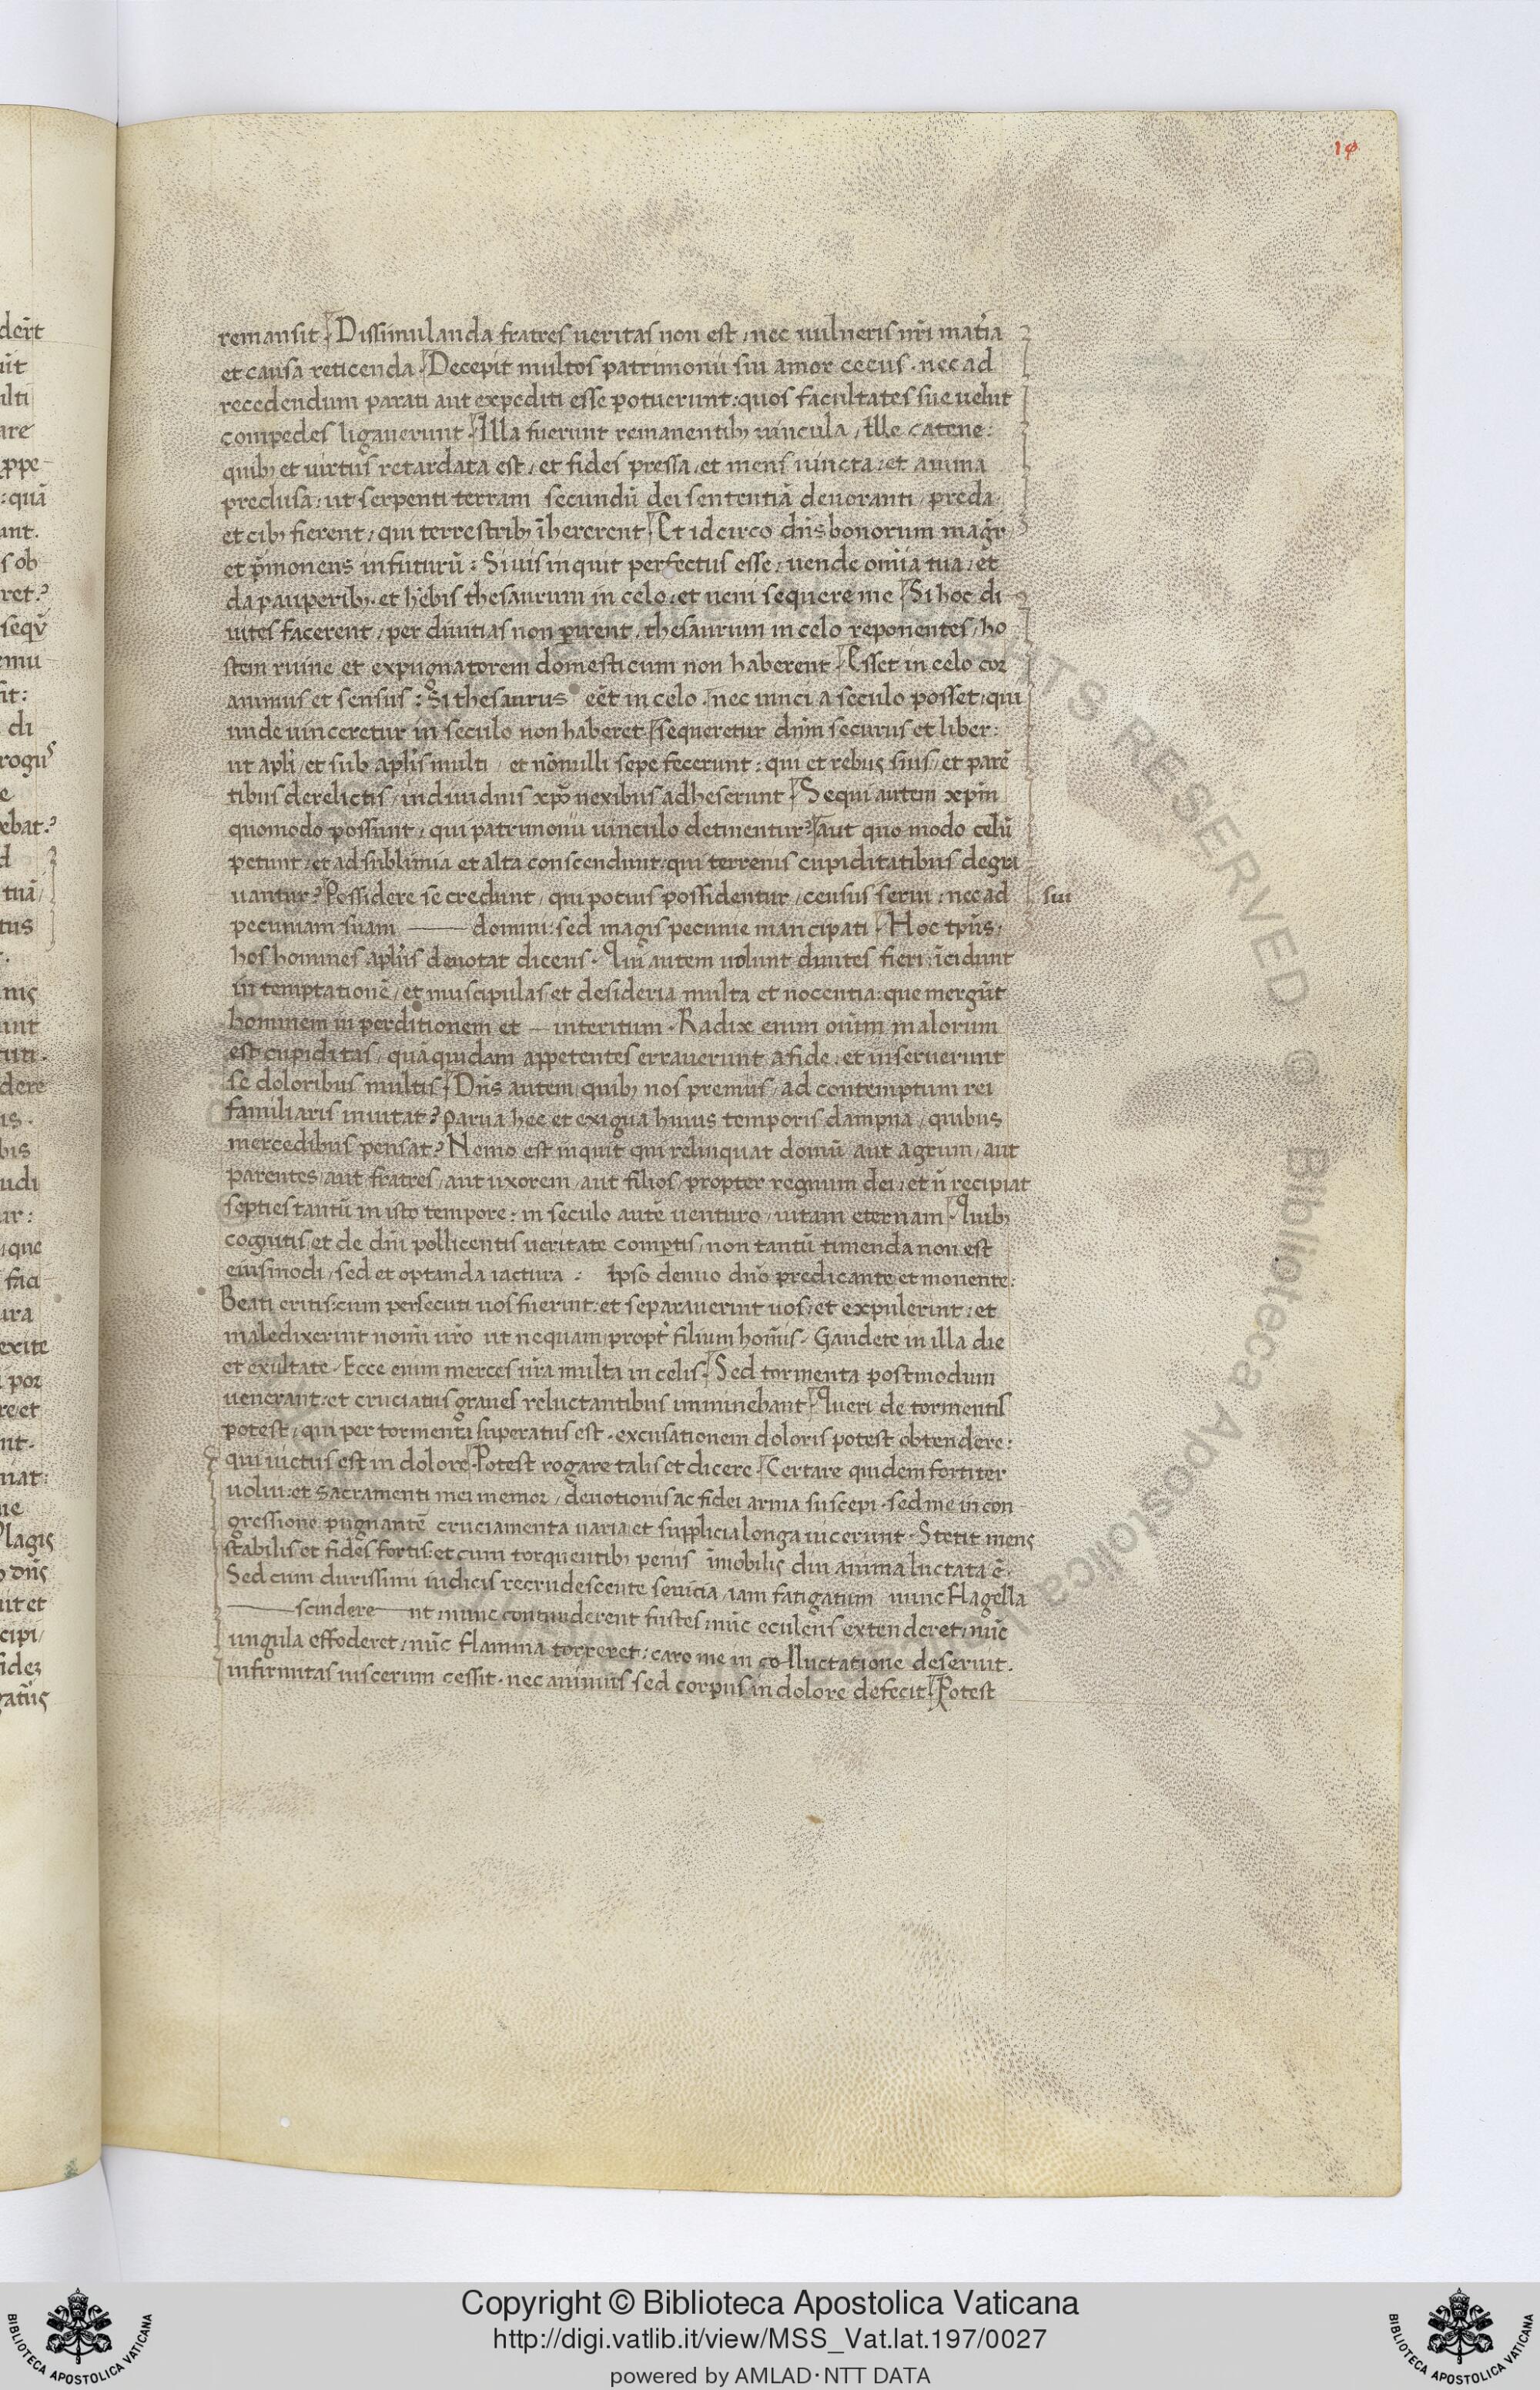 19
remansit. Dissimulanda fratres ueritas non est, nec uulneris nr̄i mat̓ia
et causa reticenda. Decepit multos patrimonii sui amor cecus. nec ad
recedendum parati aut expediti esse potuerunt: quos facultates sue uelut
compedes ligauerunt. Illa fuerunt remanentibꝫ uincula, Ille catene:
quibꝫ et uirtus retardata est, et fides pressa, et mens uincta, et anima
preclusa, ut serpenti terram secundū dei sententiā deuoranti, preda
et cibꝫ fierent, qui terrestribꝫ īhererent. Et idcirco dn̄s bonorum magr̄
et p̄monens infuturū: Si uis inquit perfectus esse, uende om̄ia tua, et
da pauperibꝫ. et hēbis thesaurum in celo, et ueni sequere me. Si hoc di
uites facerent, per diuitias non ꝑirent. thesaurum in celo reponentes, ho
stem ruine et expugnatorem domesticum non haberent. Esset in celo cor
animus et sensus: Si thesaurus eēt in celo. nec uinci a seculo posset, qui
unde uinceretur in seculo non haberet. sequeretur dn̄m securus et liber:
ut apl̄i, et sub apl̄is multi, et nōnulli sepe fecerunt: qui et rebus suis, et parē
tibus derelictis, indiuiduis xp̄o nexibus adheserunt. Sequi autem xp̄m
quomodo possunt, qui patrimonii uinculo detinentur? aut quo modo celū
petunt, et ad sublimia et alta conscendunt, qui terrenis cupiditatibus degra
uantur? Possidere se credunt, qui potius possidentur, census serui, nec ad sui
pecuniam suam — domini: sed magis pecunie mancipati. Hoc tp̄us,
hos homines apl̄us denotat dicens. Qui autem uolunt diuites fieri, īcidunt
in temptationē, et muscipulas et desideria multa et nocentia: que mergūt
hominem in perditionem et — interitum. Radix enim om̄im malorum
est cupiditas, quā quidam appetentes errauerunt a fide, et inseruerunt
se doloribus multis. Dn̄s autem quibꝫ nos premiis, ad contemptum rei
familiaris inuitat? Parua hec et exigua huius temporis dampna, quibus
mercedibus pensat? Nemo est inquit qui relinquat domū aut agrum, aut
parentes, aut fratres, aut uxorem, aut filios, propter regnum dei, et n̄ recipiat
septies tantū in isto tempore: in seculo autē uenturo, uitam eternam. Quibꝫ
cognitis, et de dn̄i pollicentis ueritate comꝑtis, non tantū timenda non est
eiusmodi, sed et optanda iactura: Ipso denuo dn̄o predicante et monente:
Beati eritis: cum persecuti uos fuerint: et separauerint uos, et expulerint, et
maledixerint nom̄i ur̄o ut nequam, propt̓ filium hom̄is. Gaudete in illa die
et exultate. Ecce enim merces ur̄a multa in celis. Sed tormenta postmodum
uenerant: et cruciatus graues reluctantibus imminebant. Queri de tormentis
potest, qui per tormenta superatus est. excusationem doloris potest obtendere:
qui uictus est in dolore. Potest rogare talis et dicere. Certare quidem fortiter
uolui: et sacramenti mei memor, deuotionis ac fidei arma suscepi. sed me in con
gressione pugnantē cruciamenta uaria et supplicia longa uicerunt. Stetit mens
stabilis et fides fortis: et cum torquentibꝫ penis īmobilis diu anima luctata ē.
Sed cum durissimi iudicis recrudescente seuicia, iam fatigatum nunc flagella
— scindere — nt, nunc contunderent fustes, nūc eculeus extenderet, nūc
ungula effoderet, nūc flamma torreret: caro me in colluctatione deseruit.
infirmitas uiscerum cessit. nec animus, sed corpus in dolore defecit. Potest
Copyright © Biblioteca Apostolica Vaticana
http://digi.vatlib.it/view/MSS_Vat.lat.197/0027
powered by AMLAD·NTT DATA